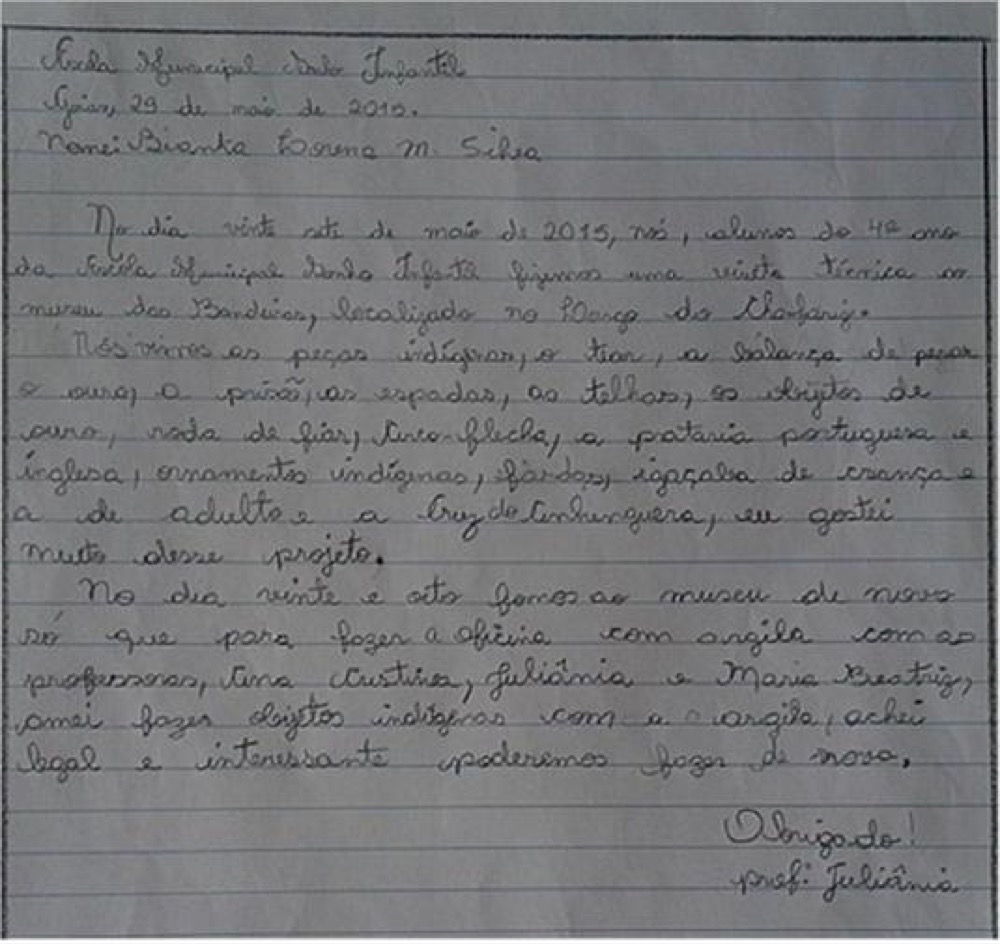 Escola Municipal Sonho Infantil
Goiás, 29 de maio de 2015.
Nome: Bianka Lorena M. Silva
No dia vinte sete de maio de 2015, nós, alunos do 4º ano
da Escola Municipal Sonho Infantil fizemos uma visita técnica ao
museu das Bandeiras, localizado no Largo do Chafariz.
Nós vimos as peças indígenas, o tear, a balança de pesar
o ouro, a prisão, as espadas, as telhas, os objetos de
ouro, roda de fiar, Arco-flecha, a pataria portuguesa e
inglesa, ornamentos indígenas, fardas, igaçaba de criança e
a de adulto e a Cruz do Anhanguera, eu gostei
muito desse projeto.
No dia vinte e oito fomos ao museu de novo
só que para fazer a oficina com argila com as
professoras, Ana Cristina, Juliânia e Maria Beatriz,
amei fazer objetos indígenas com a argila, achei
legal e interessante poderemos fazer de novo.
Obrigado!
prof: Juliânia